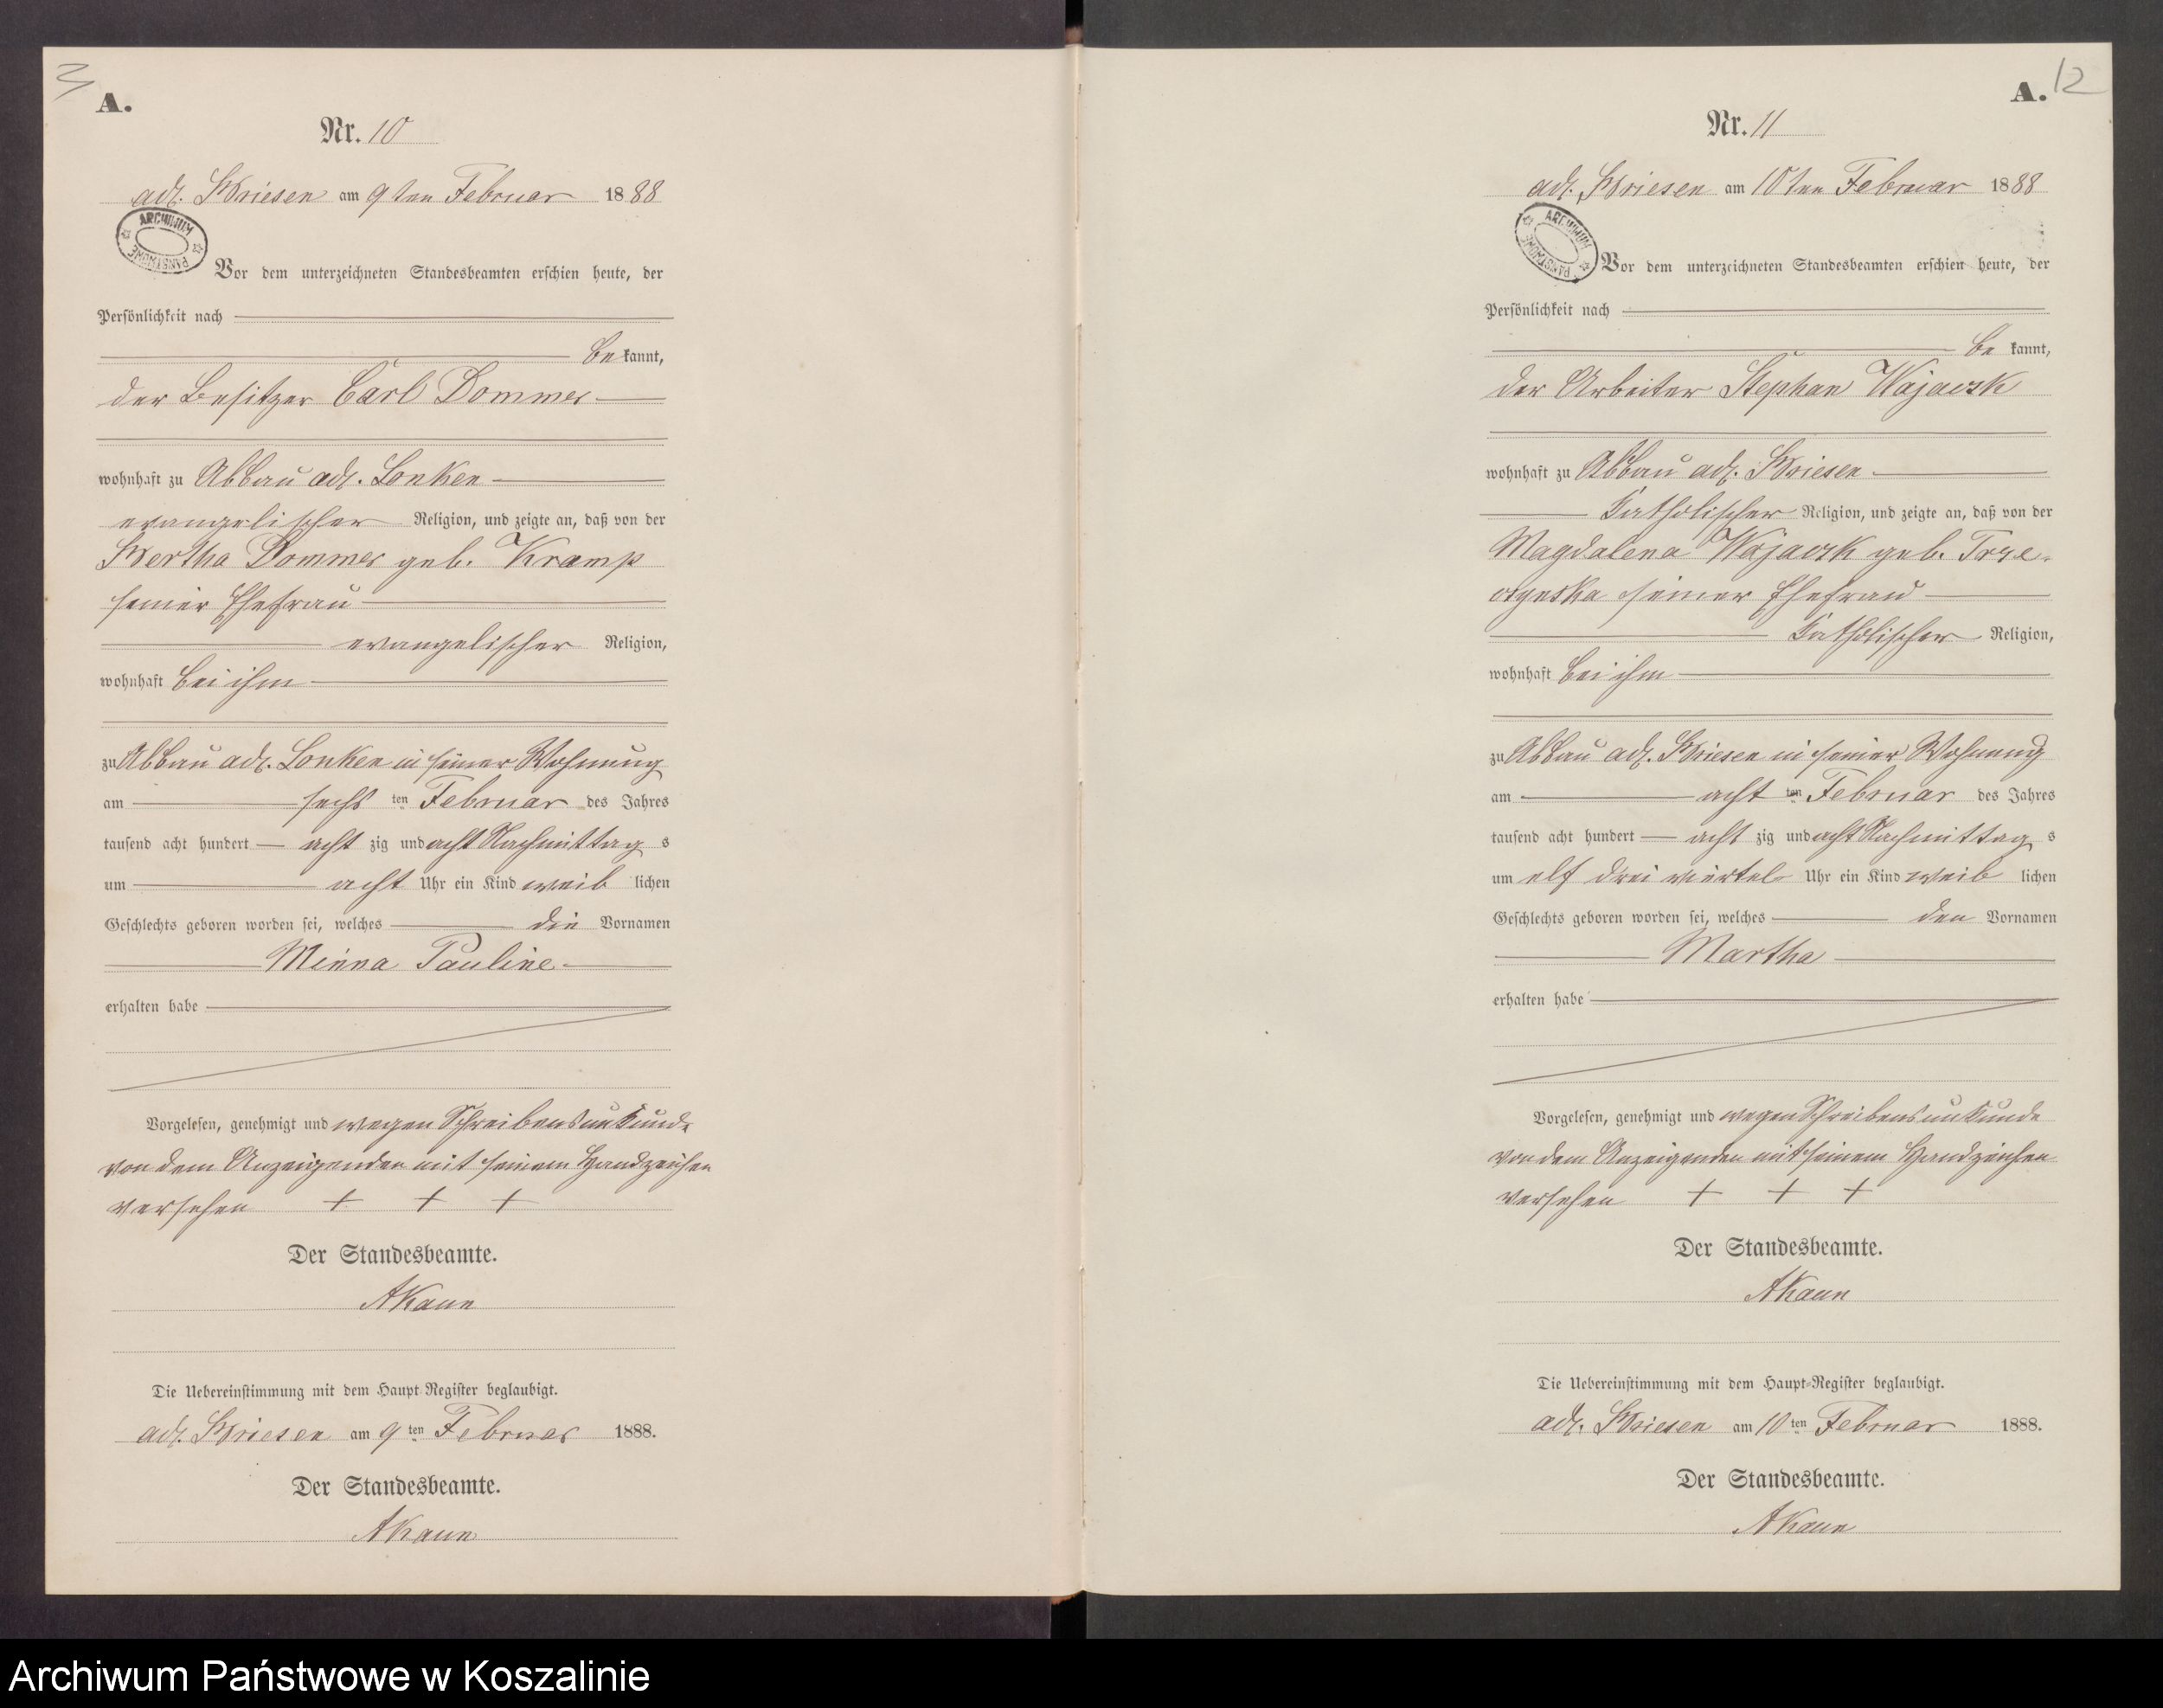 A.
Nr. 10
adl. Briesen am 9ten Februar 1888
ARCHIWUM PAŃSTWOWE
Vor dem unterzeichneten Standesbeamten erschien heute, der
Persönlichkeit nach
bekannt,
der Besitzer Carl Dommer
wohnhaft zu Abbau adl. Lonken
evangelischer Religion, und zeigte an, daß von der
Bertha Dommer geb. Kramp
seiner Ehefrau
evangelischer Religion,
wohnhaft bei ihm
zu Abbau adl. Lonken in seiner Wohnung
am sechsten Februar des Jahres
tausend acht hundert acht zig und acht Nachmittags
um acht Uhr ein Kind weiblichen
Geschlechts geboren worden sei, welches die Vornamen
Minna Pauline
erhalten habe
Vorgelesen, genehmigt und wegen Schreibensunkunde
von dem Anzeigenden mit seinem Handzeichen
versehen + + +
Der Standesbeamte.
AKaun
Die Uebereinstimmung mit dem Haupt-Register beglaubigt.
adl. Briesen am 9ten Februar 1888.
Der Standesbeamte.
AKaun
A. 12
Nr. 11
adl. Briesen am 10ten Februar 1888
ARCHIWUM PAŃSTWOWE
Vor dem unterzeichneten Standesbeamten erschien heute, der
Persönlichkeit nach
be kannt,
der Arbeiter Stephan
wohnhaft zu Abbau adl. Briesen
katholischer Religion, und zeigte an, daß von der
Magdalena geb.
seiner Ehefrau
katholischer Religion,
wohnhaft bei ihm
zu Abbau adl. Briesen in seiner Wohnung
am achtten Februar des Jahres
tausend acht hundert acht zig und acht Nachmittags
um elf drei viertel Uhr ein Kind weiblichen
Geschlechts geboren worden sei, welches den Vornamen
Martha
erhalten habe
Vorgelesen, genehmigt und wegen Schreibensunkunde
von dem Anzeigenden mit seinem Handzeichen
versehen + + +
Der Standesbeamte.
AKaun
Die Uebereinstimmung mit dem Haupt-Register beglaubigt.
adl. Briesen am 10ten Februar 1888.
Der Standesbeamte.
AKaun
Archiwum Państwowe w Koszalinie